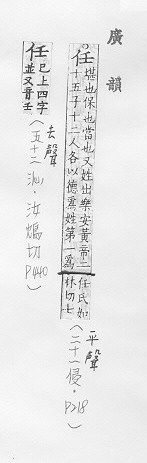 廣韻
任 堪也保也當也又姓出樂安黃帝二
十五子十二人各以德爲姓第一爲任氏如
林切七
(平聲
二十一侵·P218)
任 已上四字
並又音壬
(去聲
五十二沁·汝鴆切 P440)